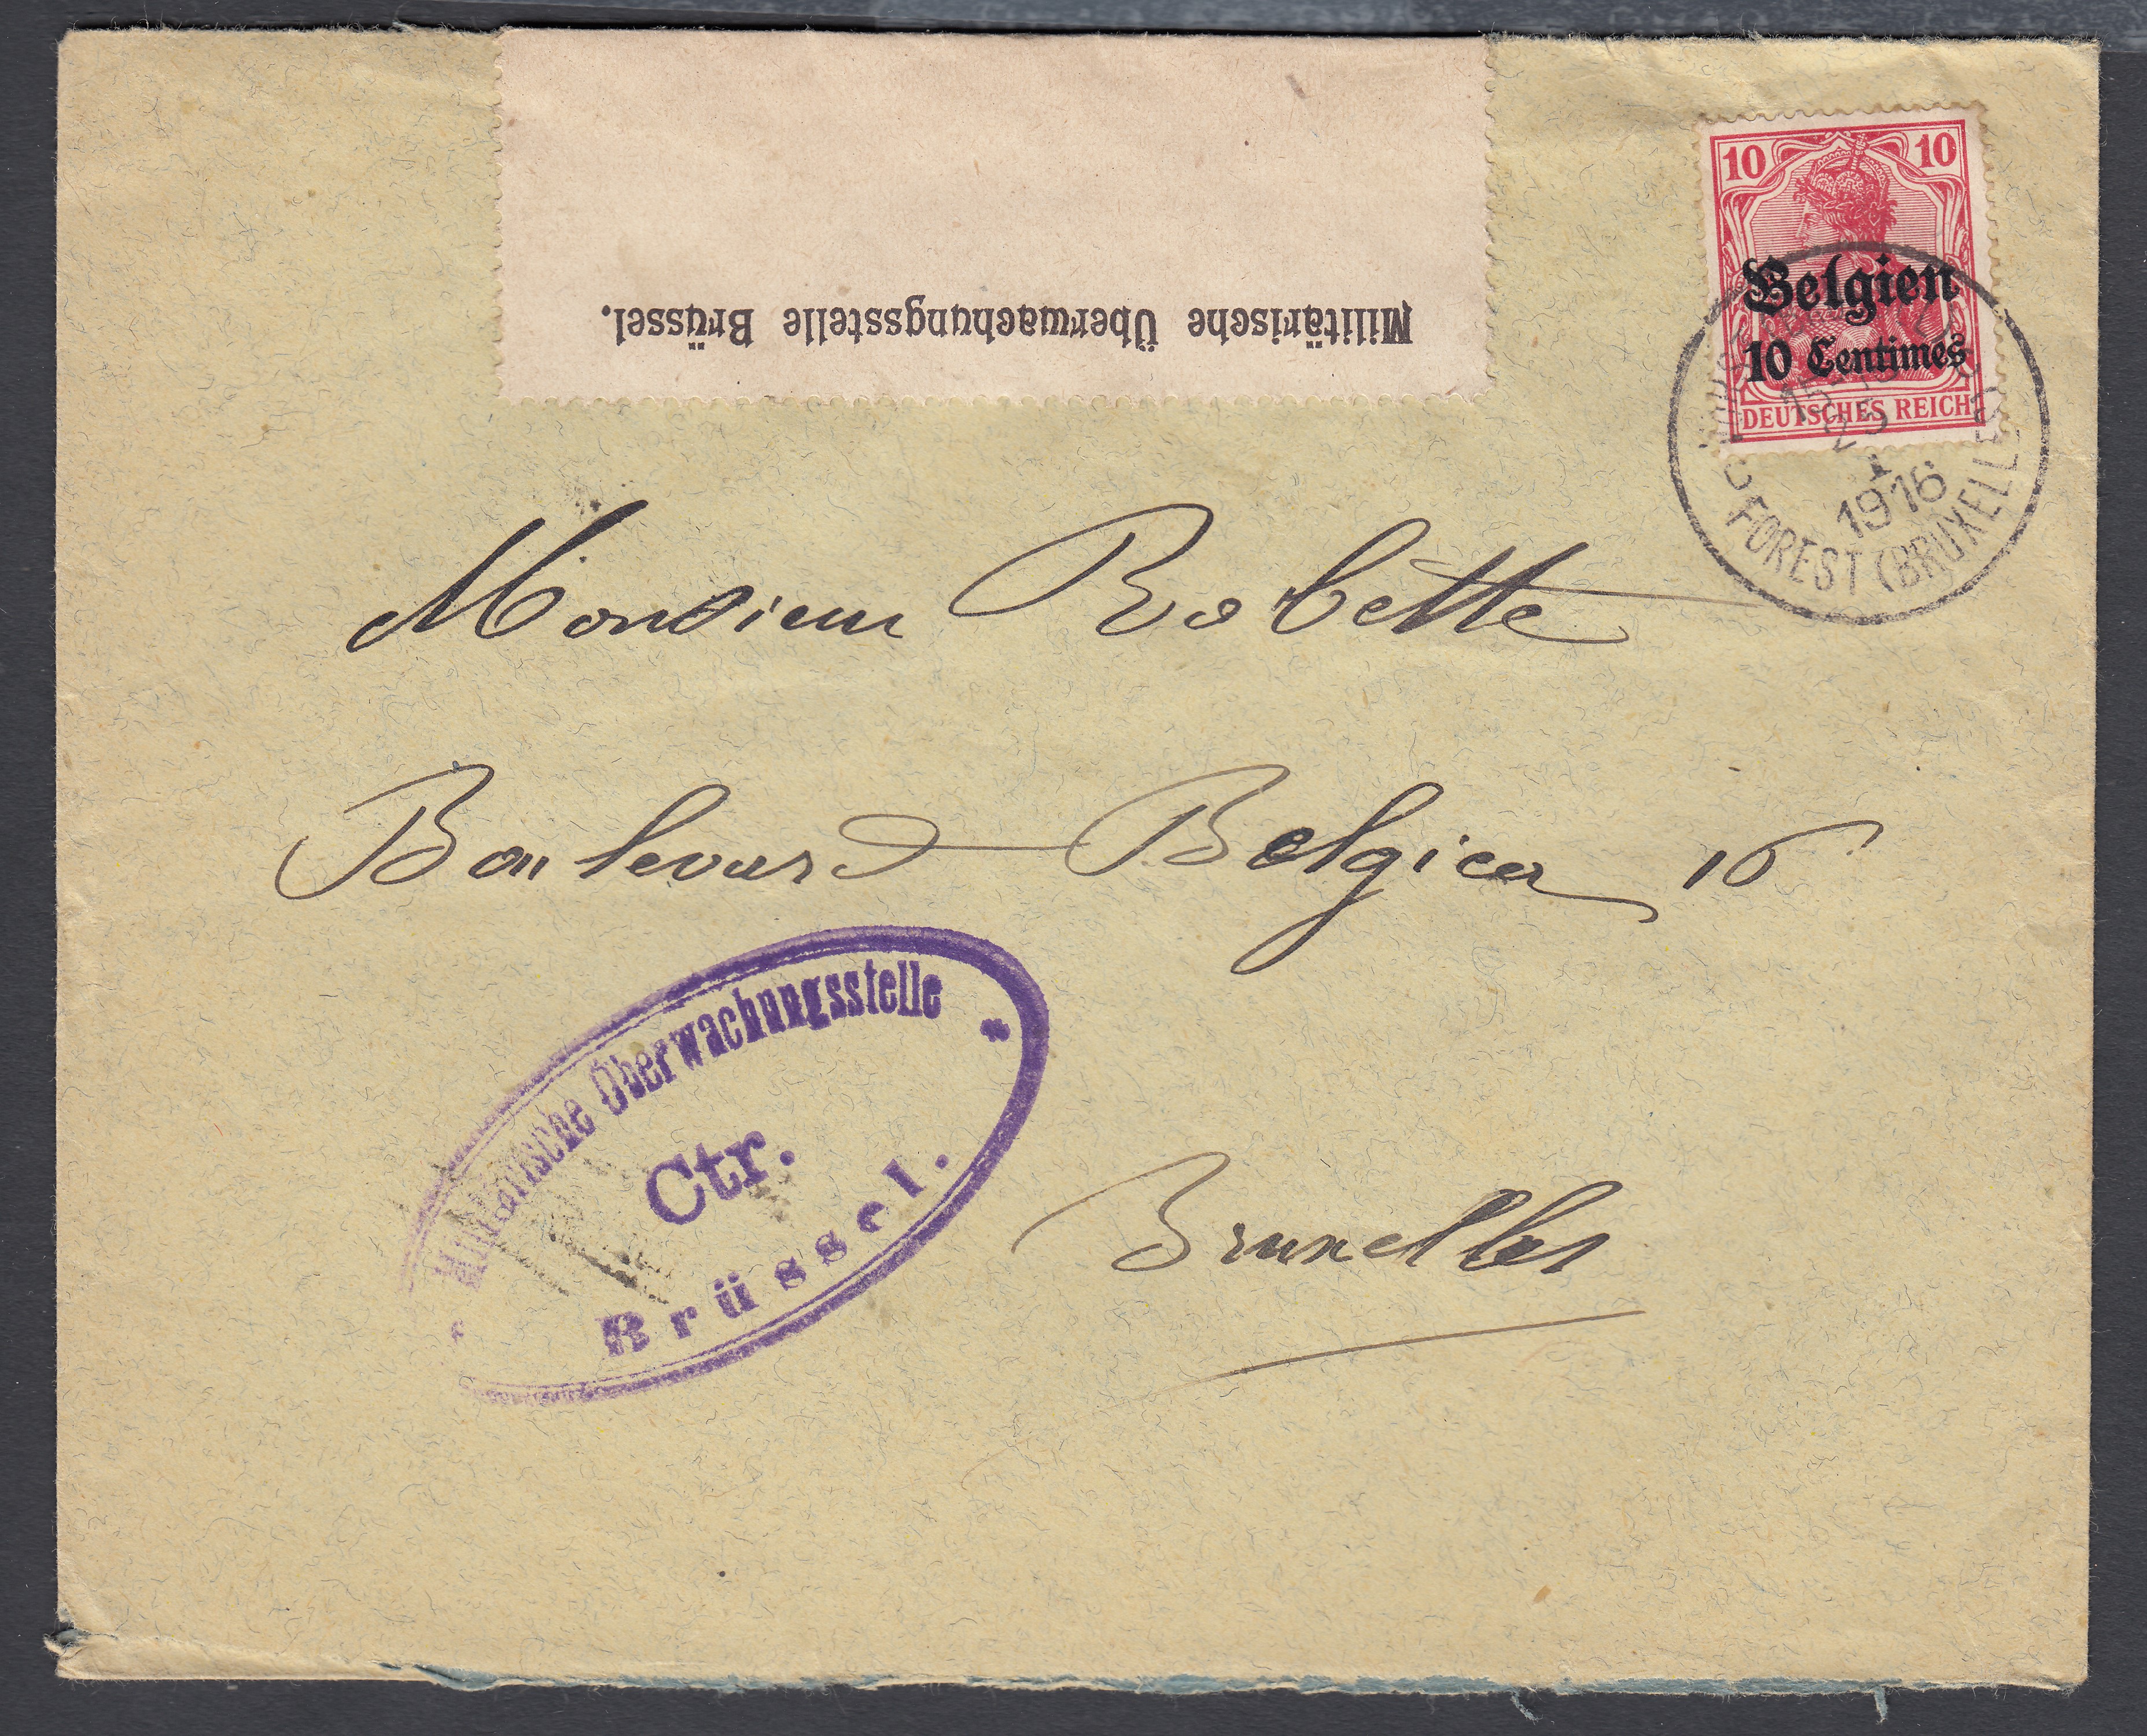 Militärische Überwachungsstelle Brüssel.
10 10
Belgien
10 Centimes
DEUTSCHES REICH
1916
FOREST (BRUXELLES)
Monsieur Robette
Boulevard Belgica 16
Militärische Überwachungsstelle
Ctr.
Brüssel.
Bruxelles